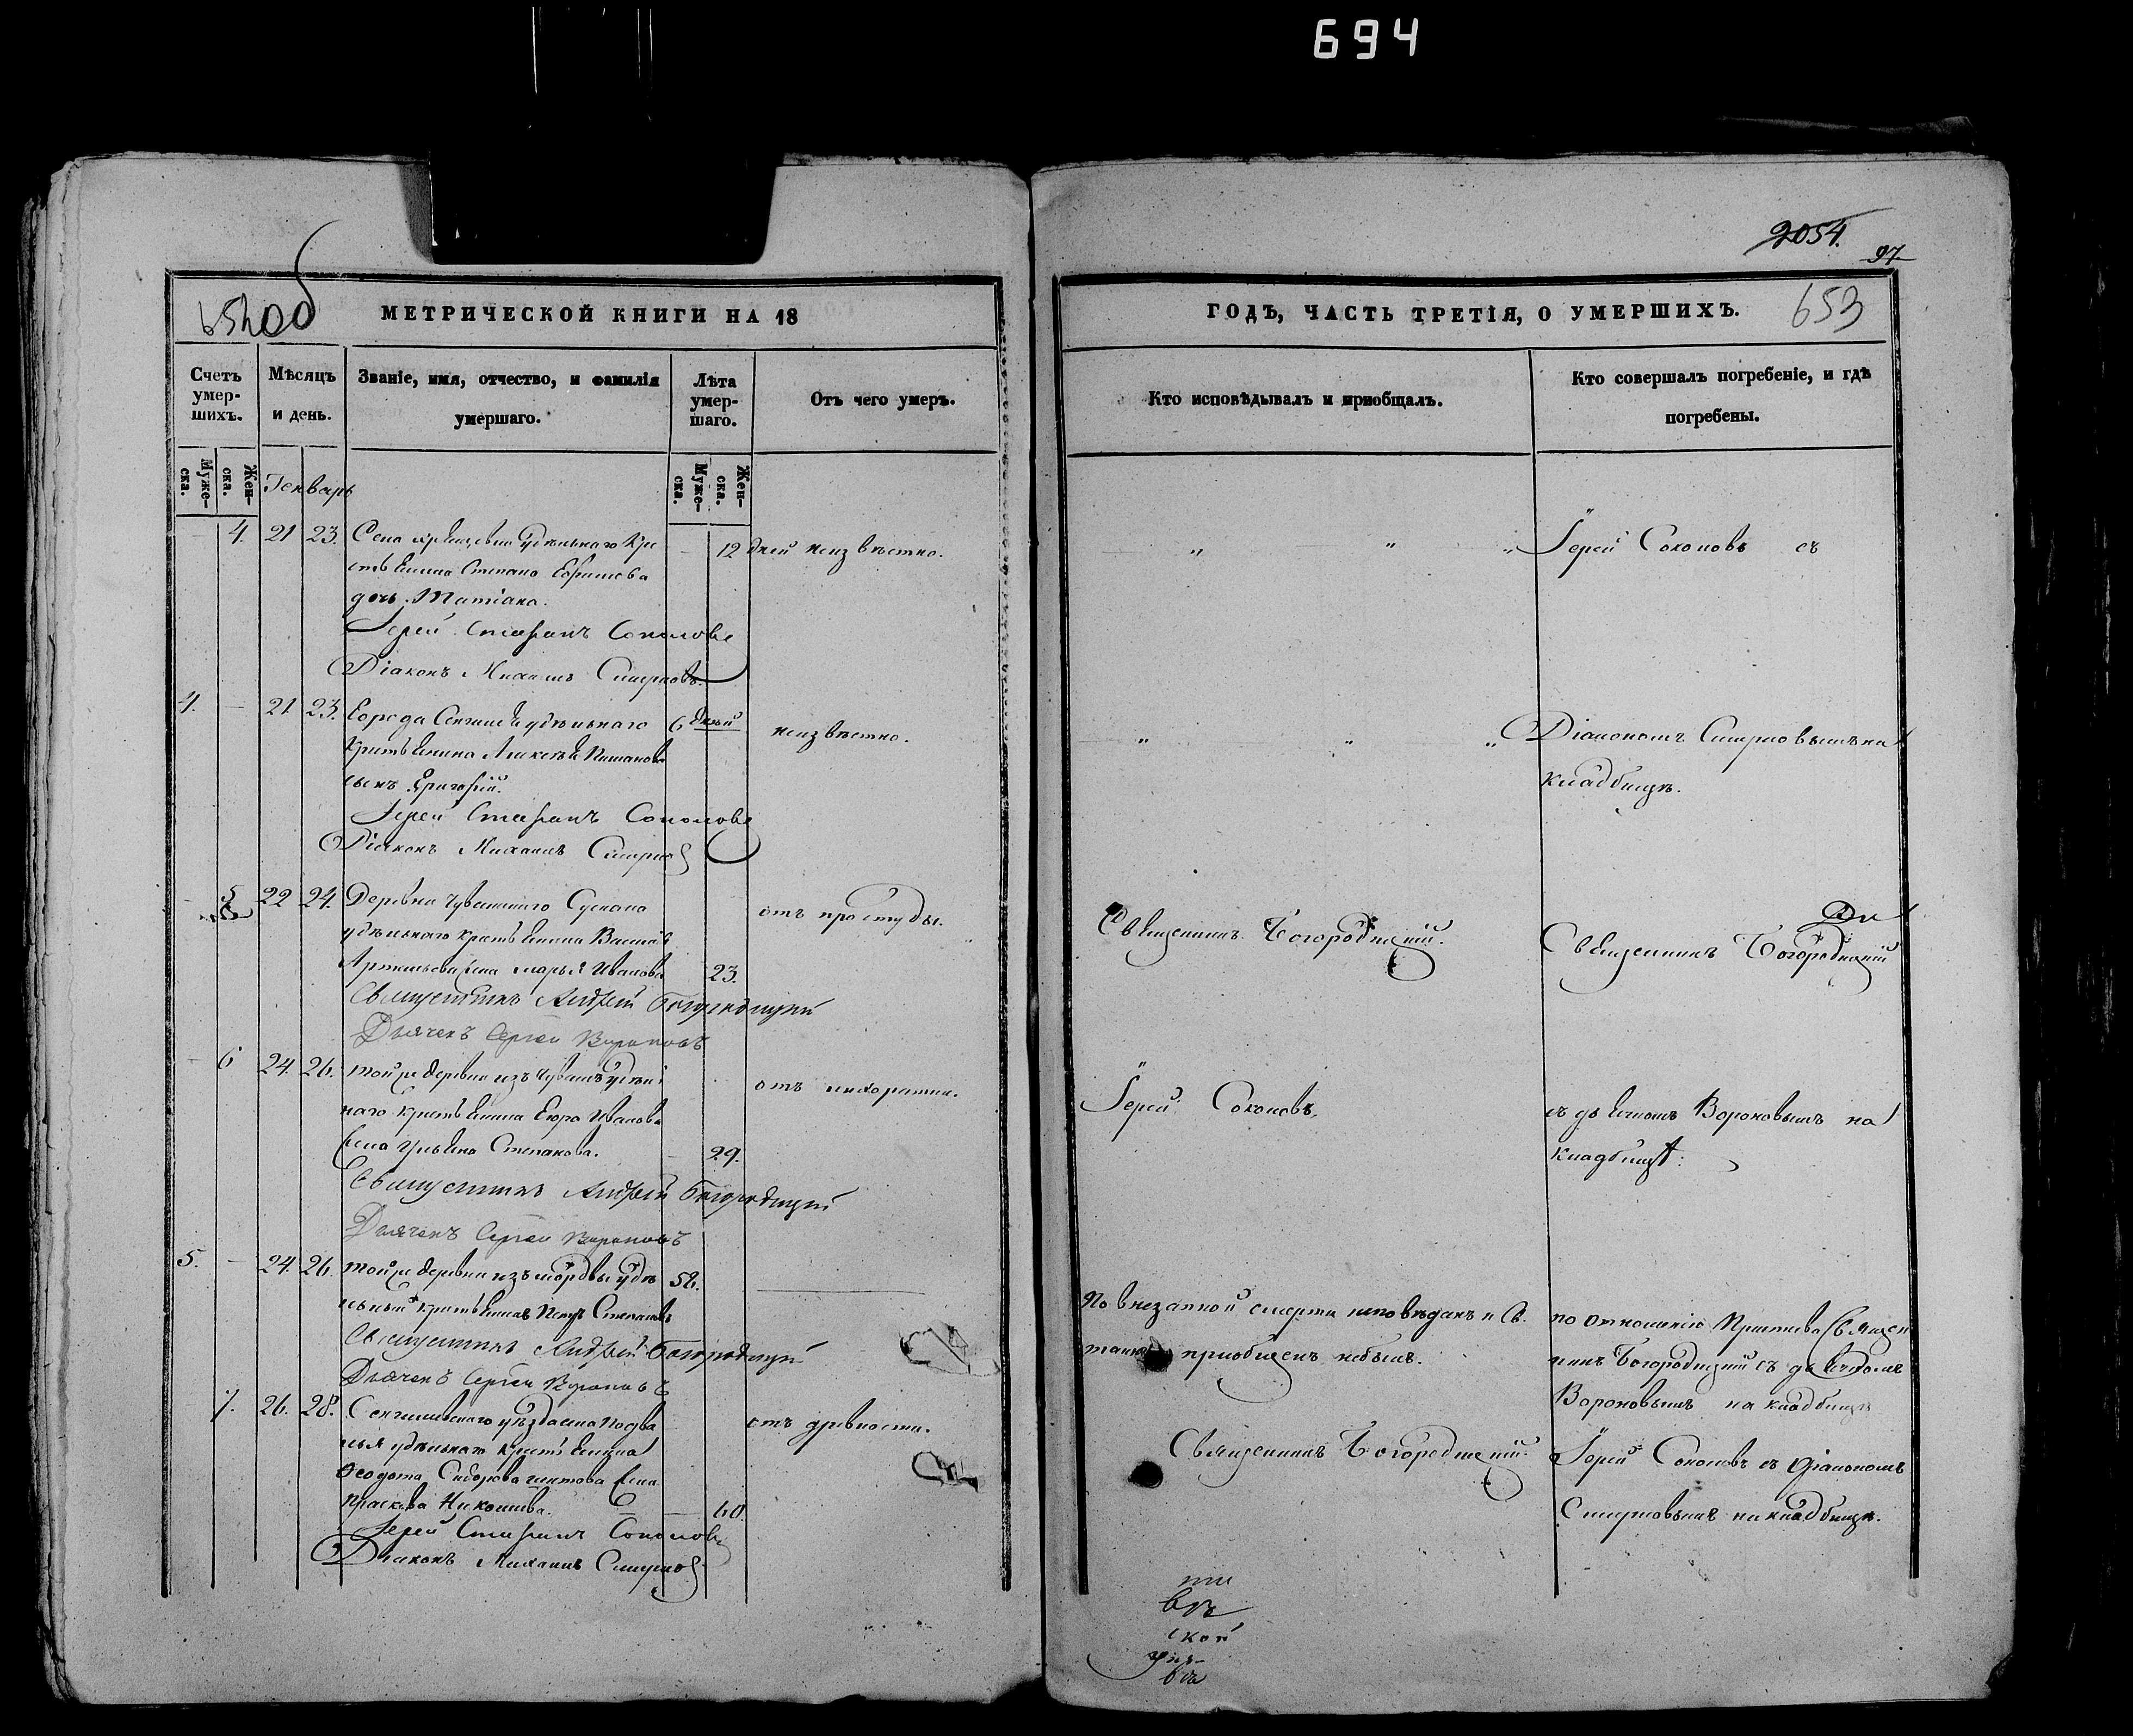 694
2054.
97
652 об
МЕТРИЧЕСКОЙ КНИГИ НА 18
ГОДЪ, ЧАСТЬ ТРЕТІЯ, О УМЕРШИХЪ.
653
Счетъ умер-шихъ.
Мѣсяцъ и день.
Званіе, имя, отчество, и фамилія умершаго.
Лѣта умер-шаго.
Отъ чего умеръ.
Кто исповѣдывалъ и приобщалъ.
Кто совершалъ погребеніе, и гдѣ погребены.
Муже-ска.
Жен-ска.
Генварь
Муже-ска.
Жен-ска.
4. 21 23. Села удѣльнаго кре
12 дней неизвѣстно.
Іерей Соколовъ съ
стьянина Степана Ефимова
дочь Татіана.
Іерей Стефанъ Соколовъ
Діаконъ Михаилъ Смирновъ.
4. 21 23. Города Сенгилея удѣльнаго 6 дней неизвѣстно.
Діакономъ Смирновымъ на
крестьянина Алексѣя
кладбищѣ.
сынъ Григорій.
Іерей Стефанъ Соколовъ
Діаконъ Михаилъ Смирновъ
5 22 24. Деревни Чувашскаго Сускана
отъ простуды.
Священникъ Богородицкій.
Священникъ Богородицкій
удѣльнаго крестьянина Василья
Артемьева жена Марья Иванова 23.
Священникъ Андрей Богородицкій
Дьячекъ Сергей Вороновъ
6 24. 26. той же деревни изъ чувашъ удѣль
отъ лихорадки.
Іерей Соколовъ.
съ дьячкомъ Вороновымъ на
наго крестьянина Егора Иванова
кладбищѣ.
жена Ульяна Степанова. 29.
Священникъ Андрей Богородицкій
Дьячекъ Сергей Вороновъ
5. 24. 26. той же деревни изъ мордвы удѣ
льный крестьянинъ Петръ Степановъ
По внезапной смерти исповѣданъ и Св.
по отношенію Священ
Священникъ Андрей Богородицкій
приобщенъ небылъ.
никъ Богородицкій съ дьячкомъ
Дьячекъ Сергей Вороновъ
Вороновымъ на кладбищѣ
7. 26. 28. Сенгилеевскаго уѣзда села Подва
отъ древности.
Священникъ Богородицкій.
Іерей Соколовъ съ діакономъ
лья удѣльнаго крестьянина
Ѳедота Сидорова жена
Смирновымъ на кладбищѣ.
Прасковья 60.
Іерей Стефанъ Соколовъ
Діаконъ Михаилъ Смирновъ